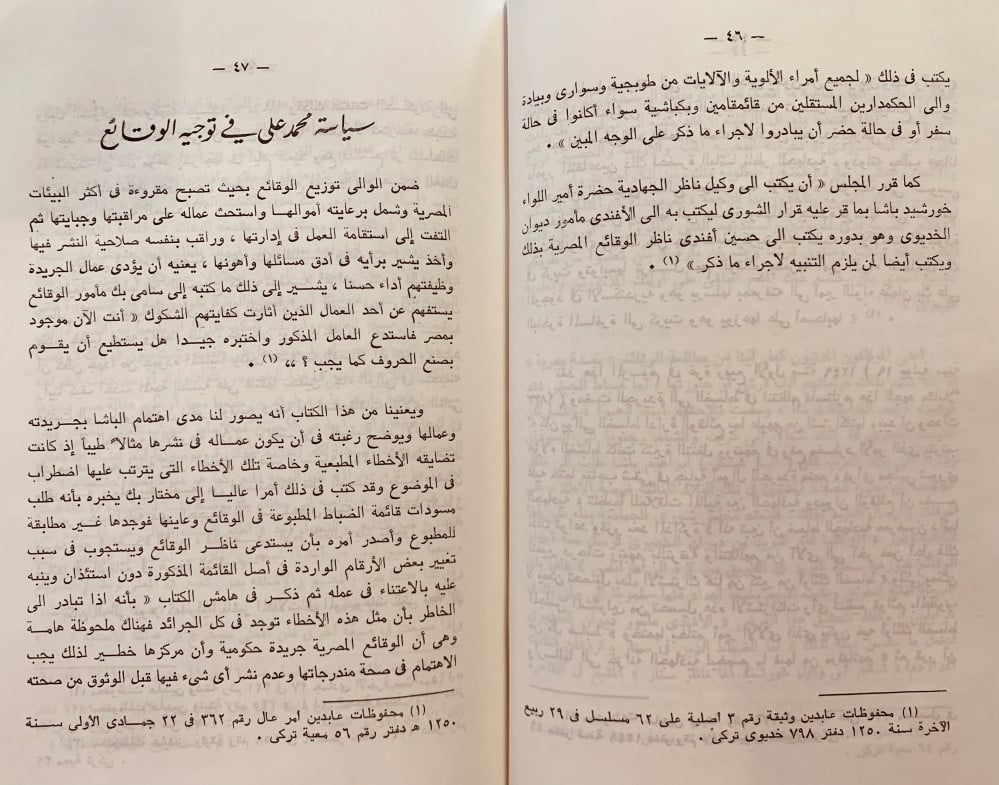 — ٤٦ —
يكتب فى ذلك « لجميع أمراء الألوية والآلايات من طوبجية وسوارى وبيادة
والى الحكمدارين المستقلين من قائمقامين وبكباشية سواء أكانوا فى حالة
سفر أو فى حالة حضر أن يبادروا لاجراء ما ذكر على الوجه المبين » .
كما قرر المجلس « أن يكتب الى وكيل ناظر الجهادية حضرة أمير اللواء
خورشيد باشا بما قر عليه قرار الشورى ليكتب به الى الأفندى مأمور ديوان
الخديوى وهو بدوره يكتب الى حسين أفندى ناظر الوقائع المصرية بذلك
ويكتب أيضا لمن يلزم التنبيه لاجراء ما ذكر » (١) .
(١) محفوظات عابدين وثيقة رقم ٣ اصلية على ٦٢ مسلسل فى ٢٩ ربيع
الآخرة سنة ١٢٥٠ دفتر ٧٩٨ خديوى تركى .
— ٤٧ —
سياسة محمد على في توجيه الوقائع
ضمن الوالى توزيع الوقائع بحيث تصبح مقروءة فى أكثر البيئات
المصرية وشمل برعايته أموالها واستحث عماله على مراقبتها وجبايتها ثم
التفت إلى استقامة العمل فى إدارتها ، وراقب بنفسه صلاحية النشر فيها
وأخذ يشير برأيه فى أدق مسائلها وأهونها ، يعنيه أن يؤدى عمال الجريدة
وظيفتهم أداء حسنا ، يشير إلى ذلك ما كتبه إلى سامى بك مأمور الوقائع
يستفهم عن أحد العمال الذين أثارت كفايتهم الشكوك « أنت الآن موجود
بمصر فاستدع العامل المذكور واختبره جيدا هل يستطيع أن يقوم
بصنع الحروف كما يجب ؟ ،، (١) .
ويعنينا من هذا الكتاب أنه يصور لنا مدى اهتمام الباشا بجريدته
وعمالها ويوضح رغبته فى أن يكون عماله فى نشرها مثالاً طيباً إذ كانت
تضايقه الأخطاء المطبعية وخاصة تلك الأخطاء التى يترتب عليها اضطراب
فى الموضوع وقد كتب فى ذلك أمرا عاليا إلى مختار بك يخبره بأنه طلب
مسودات قائمة الضباط المطبوعة فى الوقائع وعاينها فوجدها غير مطابقة
للمطبوع وأصدر أمره بأن يستدعى ناظر الوقائع ويستجوب فى سبب
تغيير بعض الأرقام الواردة فى أصل القائمة المذكورة دون استئذان وينبه
عليه بالاعتناء فى عمله ثم ذكر فى هامش الكتاب « بأنه اذا تبادر الى
الخاطر بأن مثل هذه الأخطاء توجد فى كل الجرائد فهناك ملحوظة هامة
وهى أن الوقائع المصرية جريدة حكومية وأن مركزها خطير لذلك يجب
الاهتمام فى صحة مندرجاتها وعدم نشر أى شىء فيها قبل الوثوق من صحته
(١) محفوظات عابدين أمر عال رقم ٣٦٢ فى ٢٢ جمادى الأولى سنة
١٢٥٠ هـ دفتر رقم ٥٦ معية تركى .